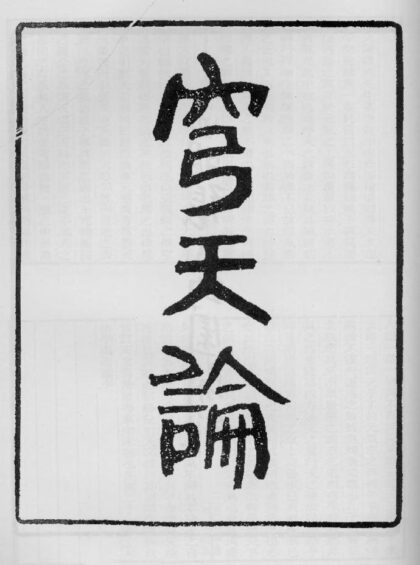 穹天論